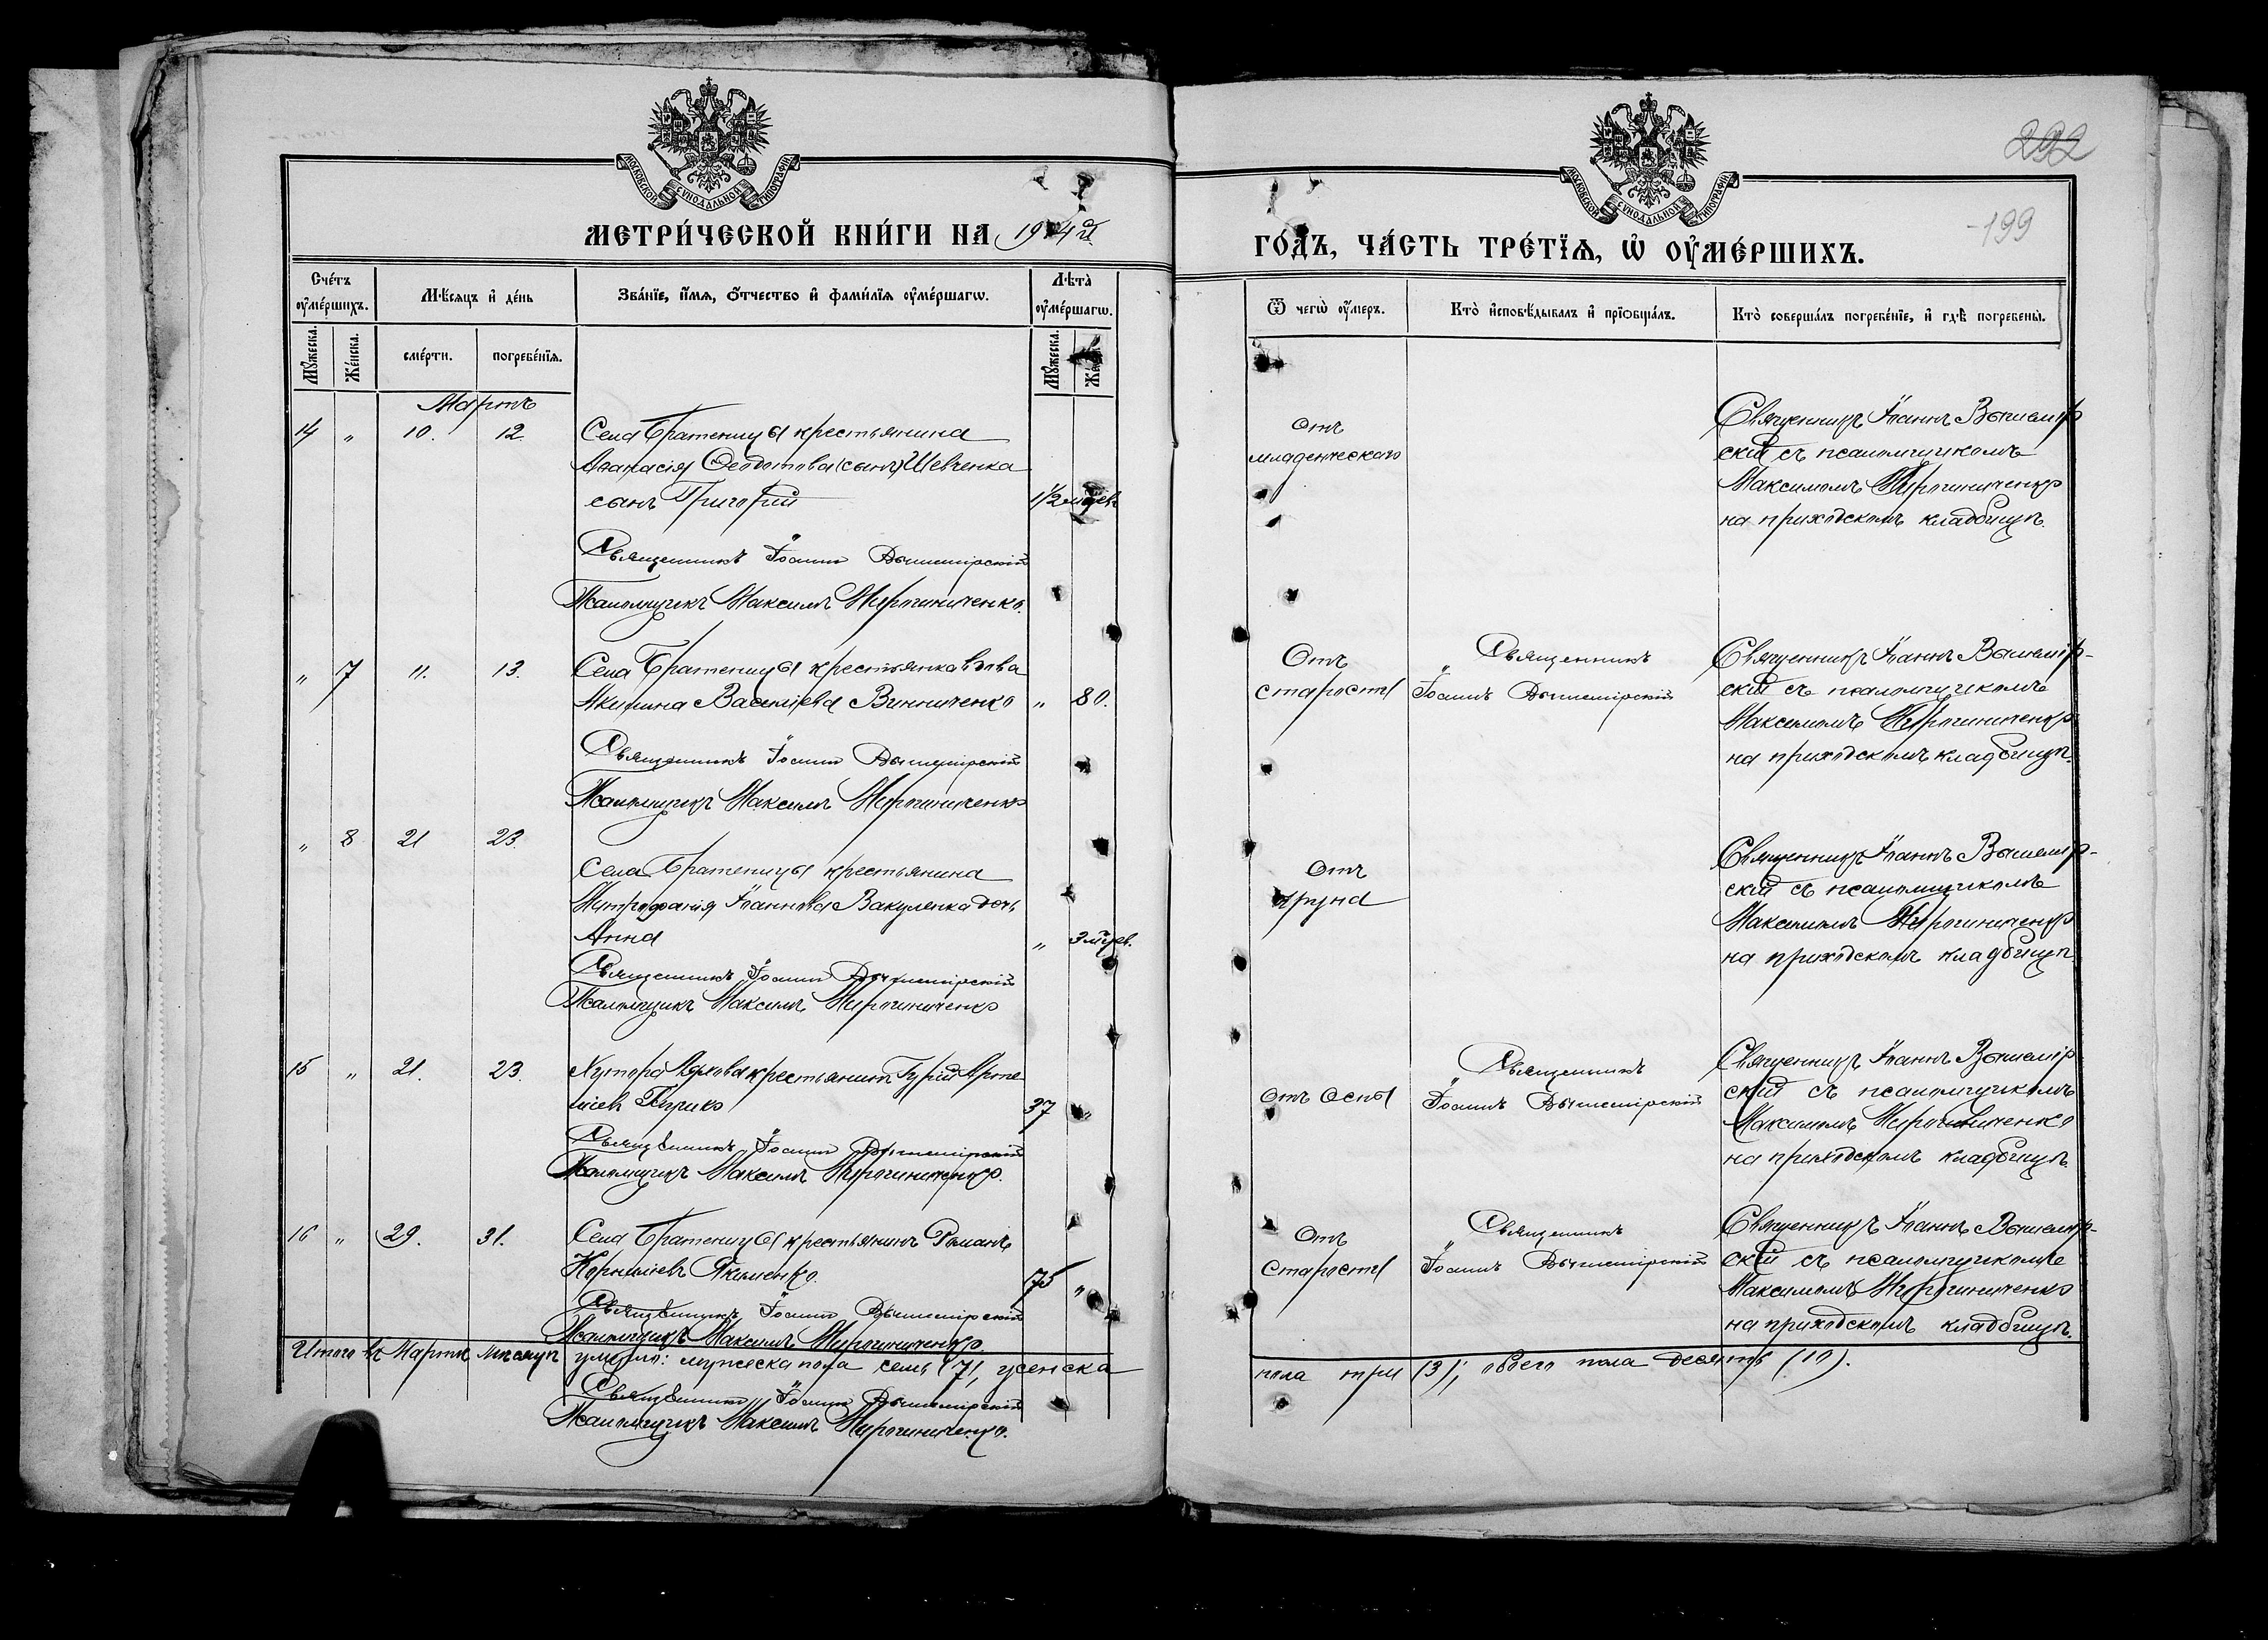 292
199
МОСКОВСКОЙ СУНОДАЛЬНОЙ ТИПОГРАФІИ
МОСКОВСКОЙ СУНОДАЛЬНОЙ ТИПОГРАФІИ
МЕТРИ́ЧЕСКОЙ КНИ́ГИ НА 1914 й
ГО́ДЪ, ЧА́СТЬ ТРЕ́ТЇѦ, Ѡ҆ ОУ҆МЕ́РШИХЪ.
Сче́тъ оу҆ме́ршихъ.
Мѣ́сяцъ и҆ де́нь
Зва́нїе, и҆́мѧ, ѻ҆́тчество и҆ фами́лїѧ оу҆ме́ршагѡ.
Лѣ́та оу҆ме́ршагѡ.
Ѿ чегѡ̀ оу҆́меръ.
Кто̀ и҆сповѣ́дывалъ и҆ прїѡбща́лъ.
Кто̀ соверша́лъ погребе́нїе, и҆ гдѣ̀ погребены̀.
Мꙋ́жеска.
Же́нска.
сме́рти.
погребе́нїѧ.
Мꙋ́жеска.
Мартъ
14 " 10. 12. Села Братеницы крестьянина
Аѳанасія Ѳеодотова (сынъ) Шевченка
сынъ Григорій 1½ мѣсяц.
Священникъ Іоаннъ Вышемірскій
Псаломщикъ Максимъ Мирошниченко.
Отъ
младенческаго
Священникъ Іоаннъ Вышемір
скій съ псаломщикомъ
Максимомъ Мирошниченко
на приходскомъ кладбищѣ.
" 7 11. 13. Села Братеницы крестьянка вдова
Акилина Василіева Винниченко " 80.
Священникъ Іоаннъ Вышемірскій
Псаломщикъ Максимъ Мирошниченко
Отъ
старости
Священникъ
Іоаннъ Вышемірскій
Священникъ Іоаннъ Вышемір-
скій съ псаломщикомъ
Максимомъ Мирошниченко
на приходскомъ кладбищѣ.
" 8 21 23.
Села Братеницы крестьянина
Митрофанія Іоаннова Вакуленка дочь
Анна " 3 мѣсяц.
Священникъ Іоаннъ Вышемірскій
Псаломщикъ Максимъ Мирошниченко
Отъ
крупа
Священникъ Іоаннъ Вышемір-
скій съ псаломщикомъ
Максимомъ Мирошниченко
на приходскомъ кладбищѣ
15 " 21. 23. Хутора крестьянинъ Гурій Арте
міевъ 37 "
Священникъ Іоаннъ Вышемірскій
Псаломщикъ Максимъ Мирошниченко.
отъ Оспы
Священникъ
Іоаннъ Вышемірскій
Священникъ Іоаннъ Вышемір
скій съ псаломщикомъ
Максимомъ Мирошниченко
на приходскомъ кладбищѣ.
16 " 29. 31. Села Братеницы крестьянинъ Романъ
Корниліевъ Якименко. 75 "
Священникъ Іоаннъ Вышемірскій
Псаломщикъ Максимъ Мирошниченко.
Отъ
старости
Священникъ
Іоаннъ Вышемірскій
Священникъ Іоаннъ Вышемір-
скій съ псаломщикомъ
Максимомъ Мирошниченко
на приходскомъ кладбищѣ.
Итого въ Мартѣ мѣсяцѣ умерло: мужеска пола семь (7), женска
пола три (3); обоего пола десять (10).
Священникъ Іоаннъ Вышемірскій
Псаломщикъ Максимъ Мирошниченко.